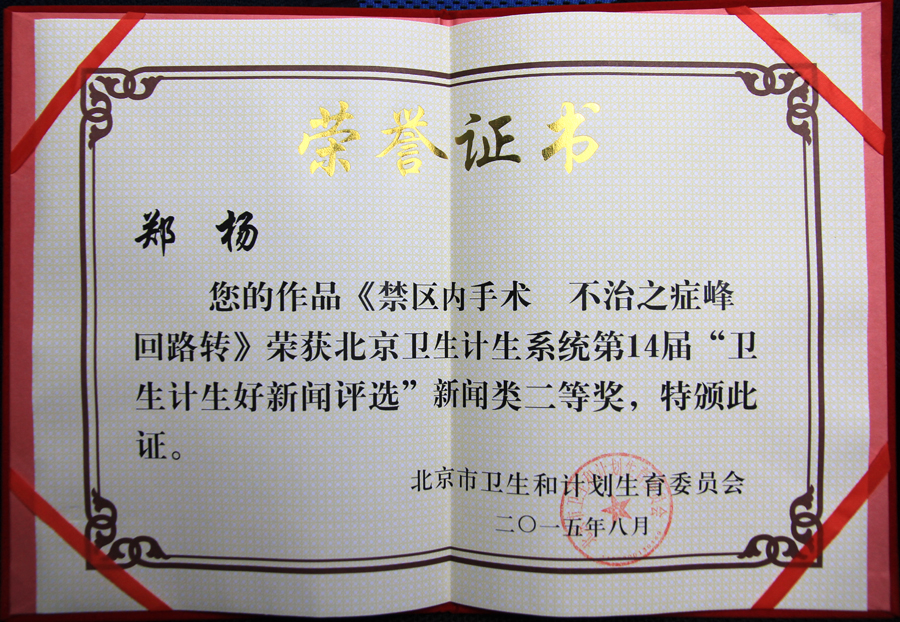 荣誉证书
郑 杨
您的作品《禁区内手术 不治之症峰
回路转》荣获北京卫生计生系统第14届“卫
生计生好新闻评选”新闻类二等奖，特颁此
证。
北京市卫生和计划生育委员会
二〇一五年八月